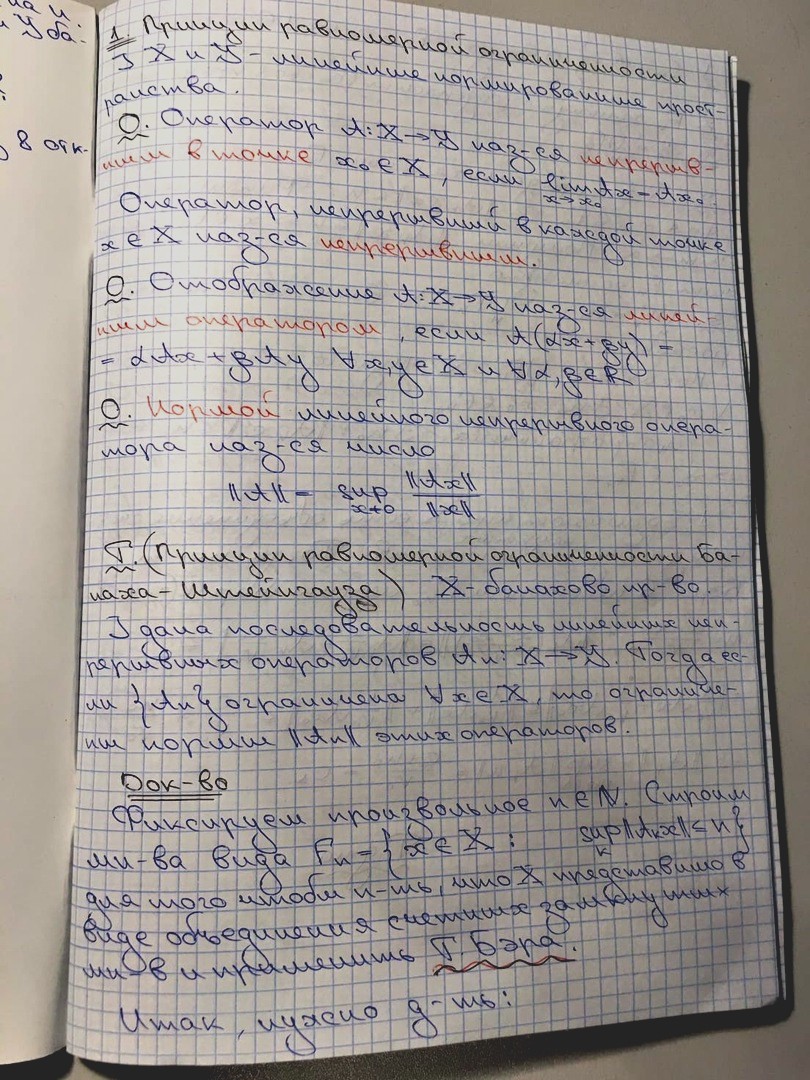 на и.
и У ба-
8 отк-
1. Принцип равномерной ограниченности
] X и Y - линейные нормированные прост-
ранства.
О. Оператор A: X→Y наз-ся непрерыв-
ным в точке x₀ ∈ X, если lim Ax = Ax₀
x→x₀
Оператор, непрерывный в каждой точке
x ∈ X наз-ся непрерывным.
О. Отображение A: X→Y наз-ся линей-
ным оператором, если A(αx+βy) =
= αAx + βAy ∀x,y∈X и ∀α,β∈R
О. Нормой линейного непрерывного опера-
тора наз-ся число
||A|| = sup ||Ax|| / ||x||
x≠0
Т. (Принцип равномерной ограниченности Ба-
наха-Штейнгауза) X - банахово пр-во.
] дана последовательность линейных неп-
рерывных операторов Aₙ: X→Y. Тогда ес-
ли {Aₙ} ограничена ∀x∈X, то ограниче-
ны нормы ||Aₙ|| этих операторов.
Док-во
Фиксируем произвольное n∈N. Строим
мн-ва вида Fₙ = {x∈X : sup||Aₖx|| ≤ n}
k
для того чтобы п-ть, что X представимо в
виде объединения счетных замкнутых
мн-в и применить Т Бэра.
Итак, нужно д-ть: